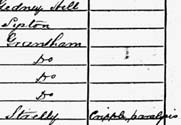 Gedney Hill
Sipton
Grantham
Do
Do
Do
Strelly Cripple, paralysis